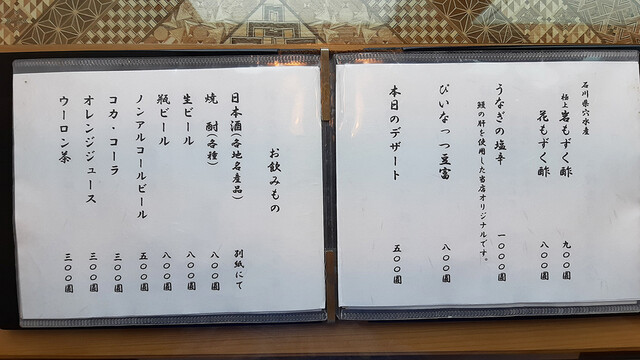 石川県穴水産
極上岩もずく酢 九〇〇圓
花もずく酢 八〇〇圓
うなぎの塩辛 一〇〇〇圓
鰻の肝を使用した当店オリジナルです。
ぴいなっつ豆富 八〇〇圓
本日のデザート 五〇〇圓
お飲みもの
日本酒(各地名産品) 別紙にて
焼酎(各種) 八〇〇圓
生ビール 八〇〇圓
瓶ビール 八〇〇圓
ノンアルコールビール 五〇〇圓
コカ・コーラ 三〇〇圓
オレンジジュース 三〇〇圓
ウーロン茶 三〇〇圓